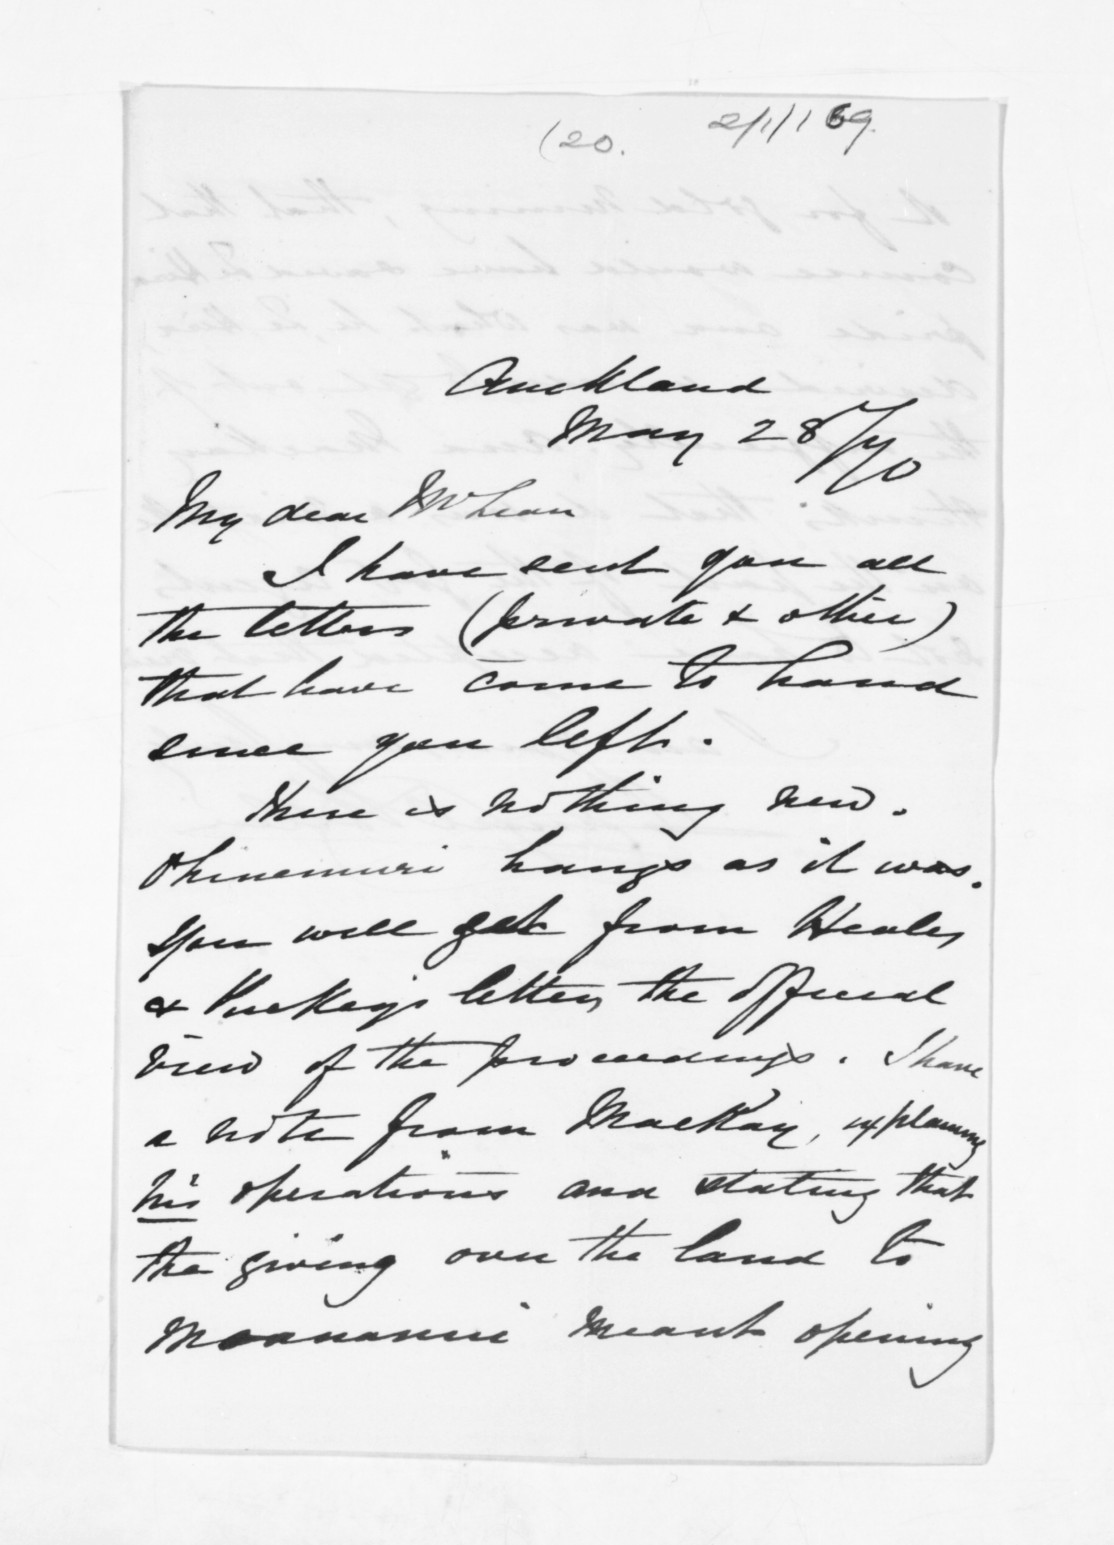 (20. 2/1/169.
Auckland
May 28/70
My dear McLean
I have sent you all
the letters (private & other)
that have come to hand
since you left.
There is nothing new.
Ohinemuri hangs as it was.
You will get from Heales
& Puckey's letters, the official
view of the proceedings. I have
a note from MacKay, explaining
his operations and stating that
the giving over the land to
Moananui meant opening